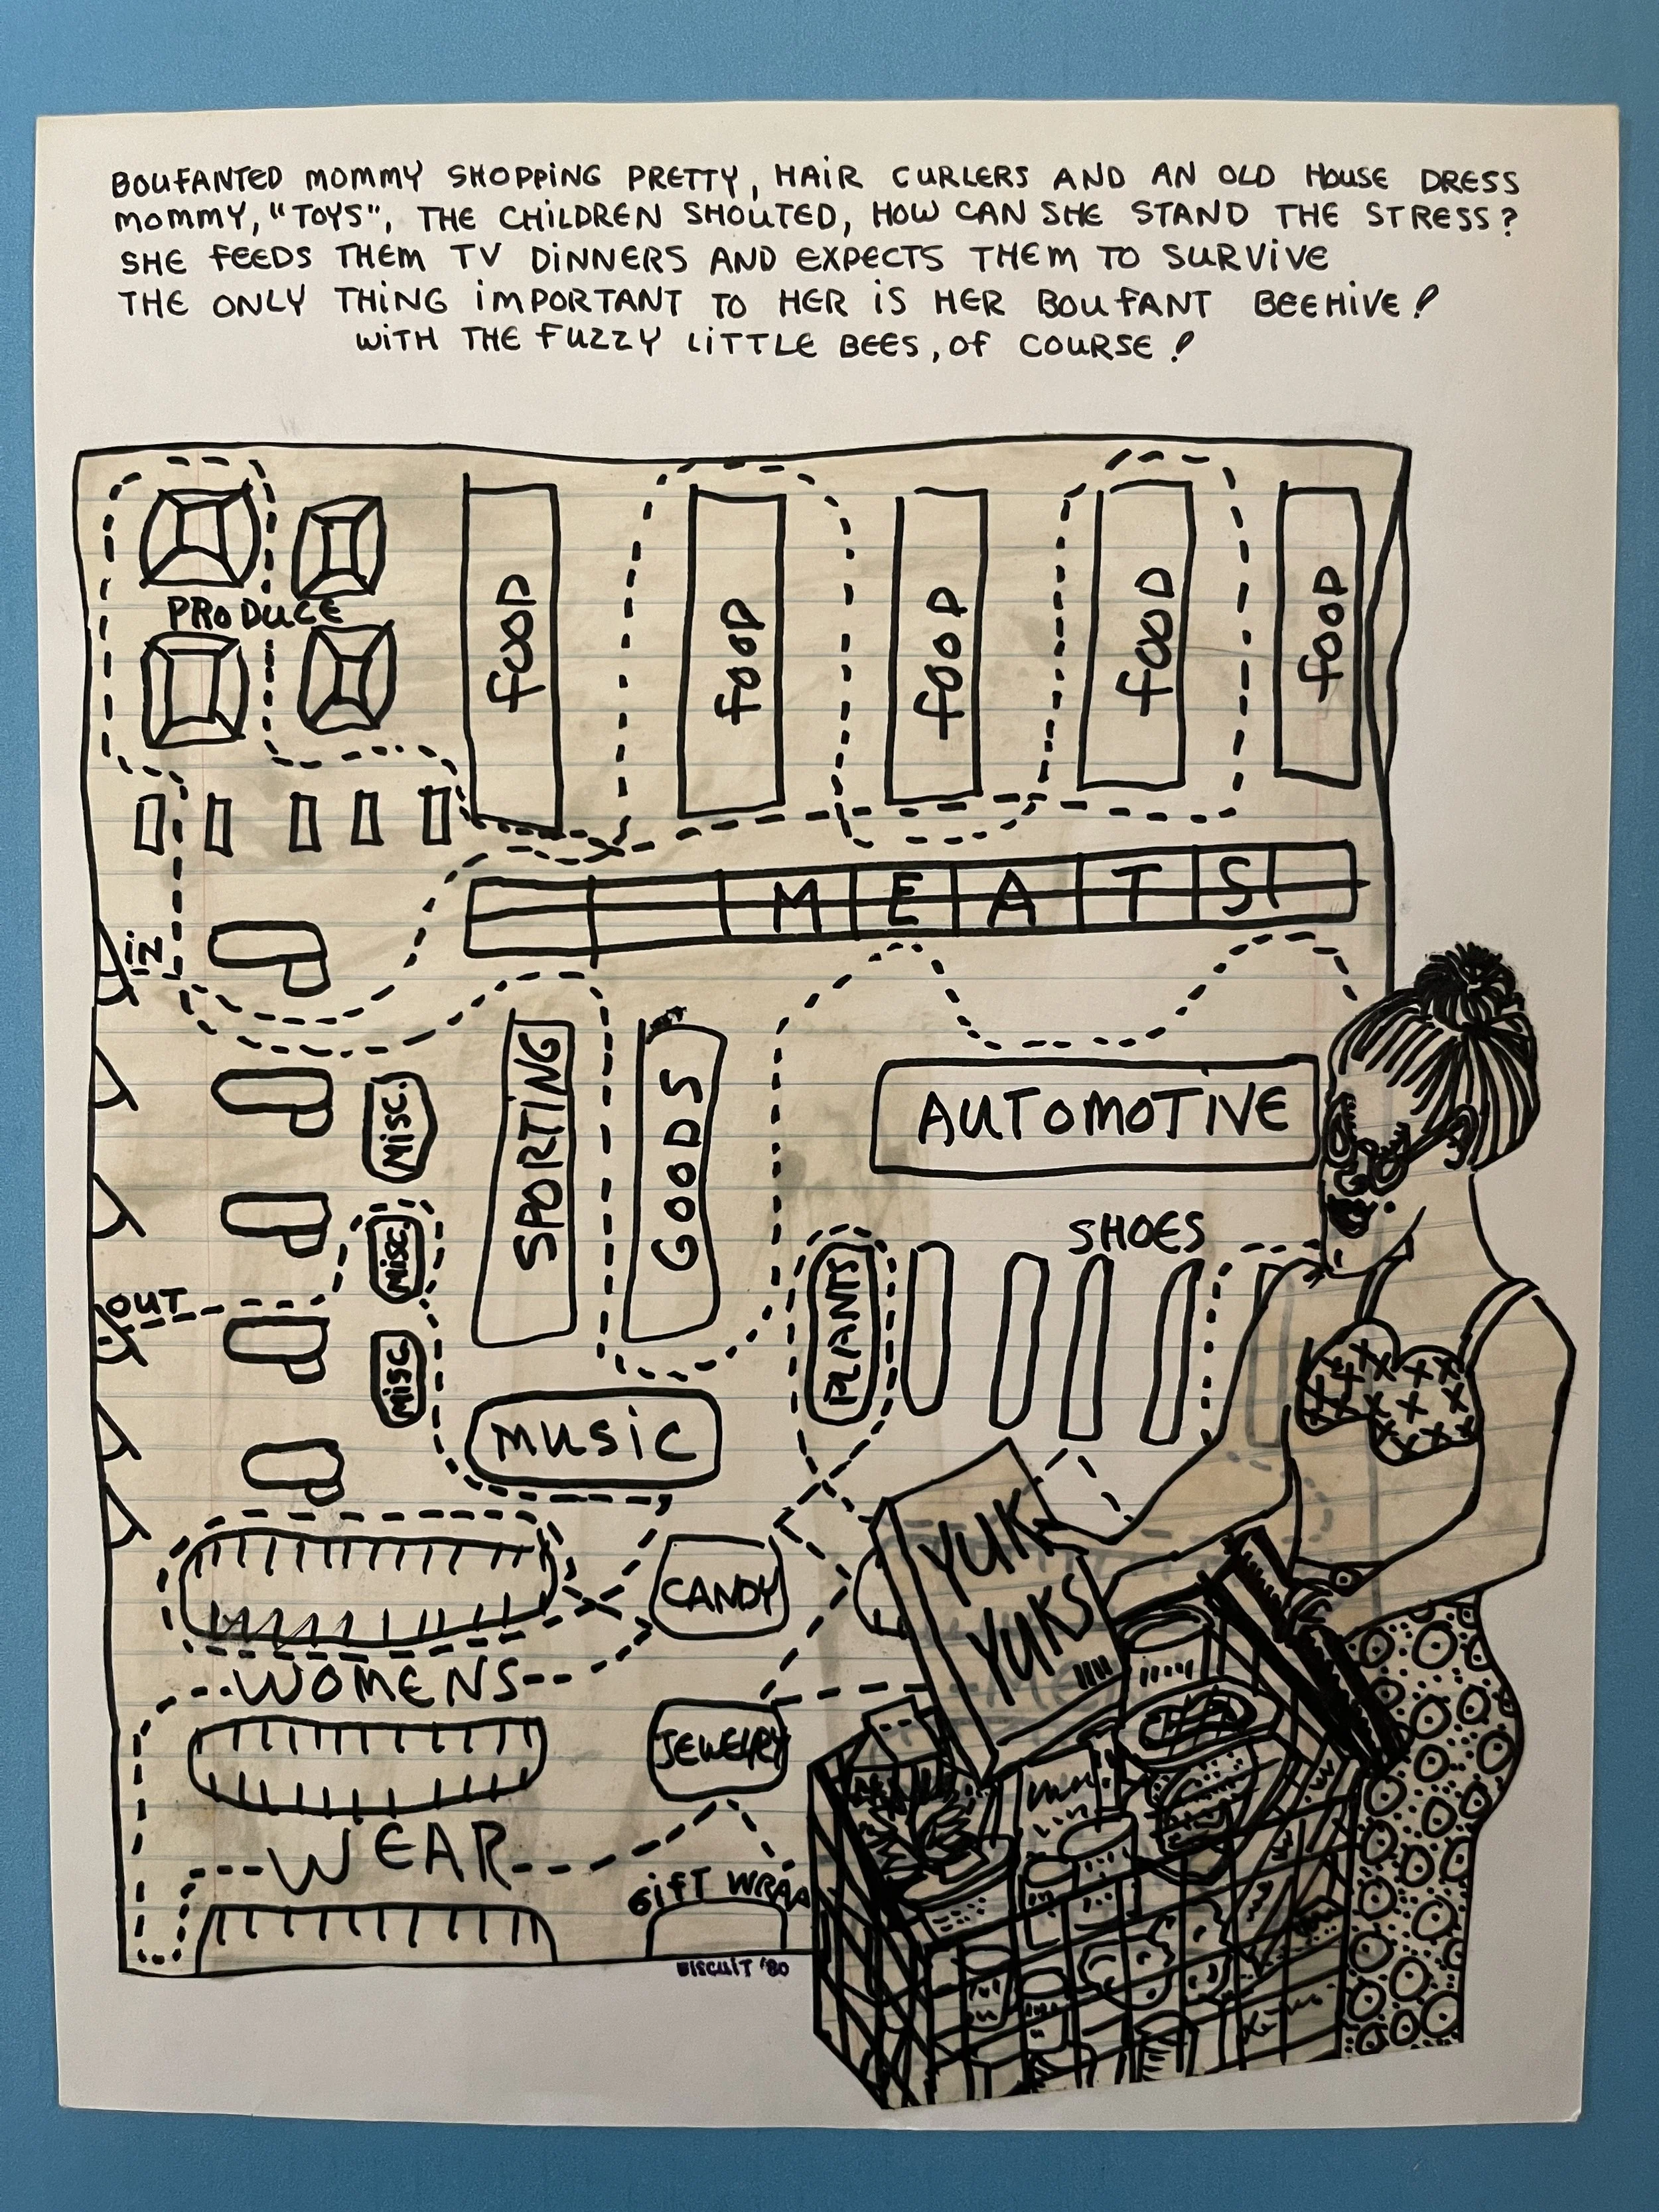 BOUFANTED MOMMY SHOPPING PRETTY, HAIR CURLERS AND AN OLD HOUSE DRESS
MOMMY, "TOYS", THE CHILDREN SHOUTED, HOW CAN SHE STAND THE STRESS?
SHE FEEDS THEM TV DINNERS AND EXPECTS THEM TO SURVIVE
THE ONLY THING IMPORTANT TO HER IS HER BOUFANT BEEHIVE!
WITH THE FUZZY LITTLE BEES, OF COURSE!
PRODUCE
FOOD
FOOD
FOOD
FOOD
FOOD
MEATS
IN
MISC.
SPORTING
GOODS
AUTOMOTIVE
SHOES
MISC.
OUT
PLANTS
MISC
MUSIC
YUK
YUKS
CANDY
WOMENS
JEWELRY
WEAR
GIFT WRAP
BISCUIT '80